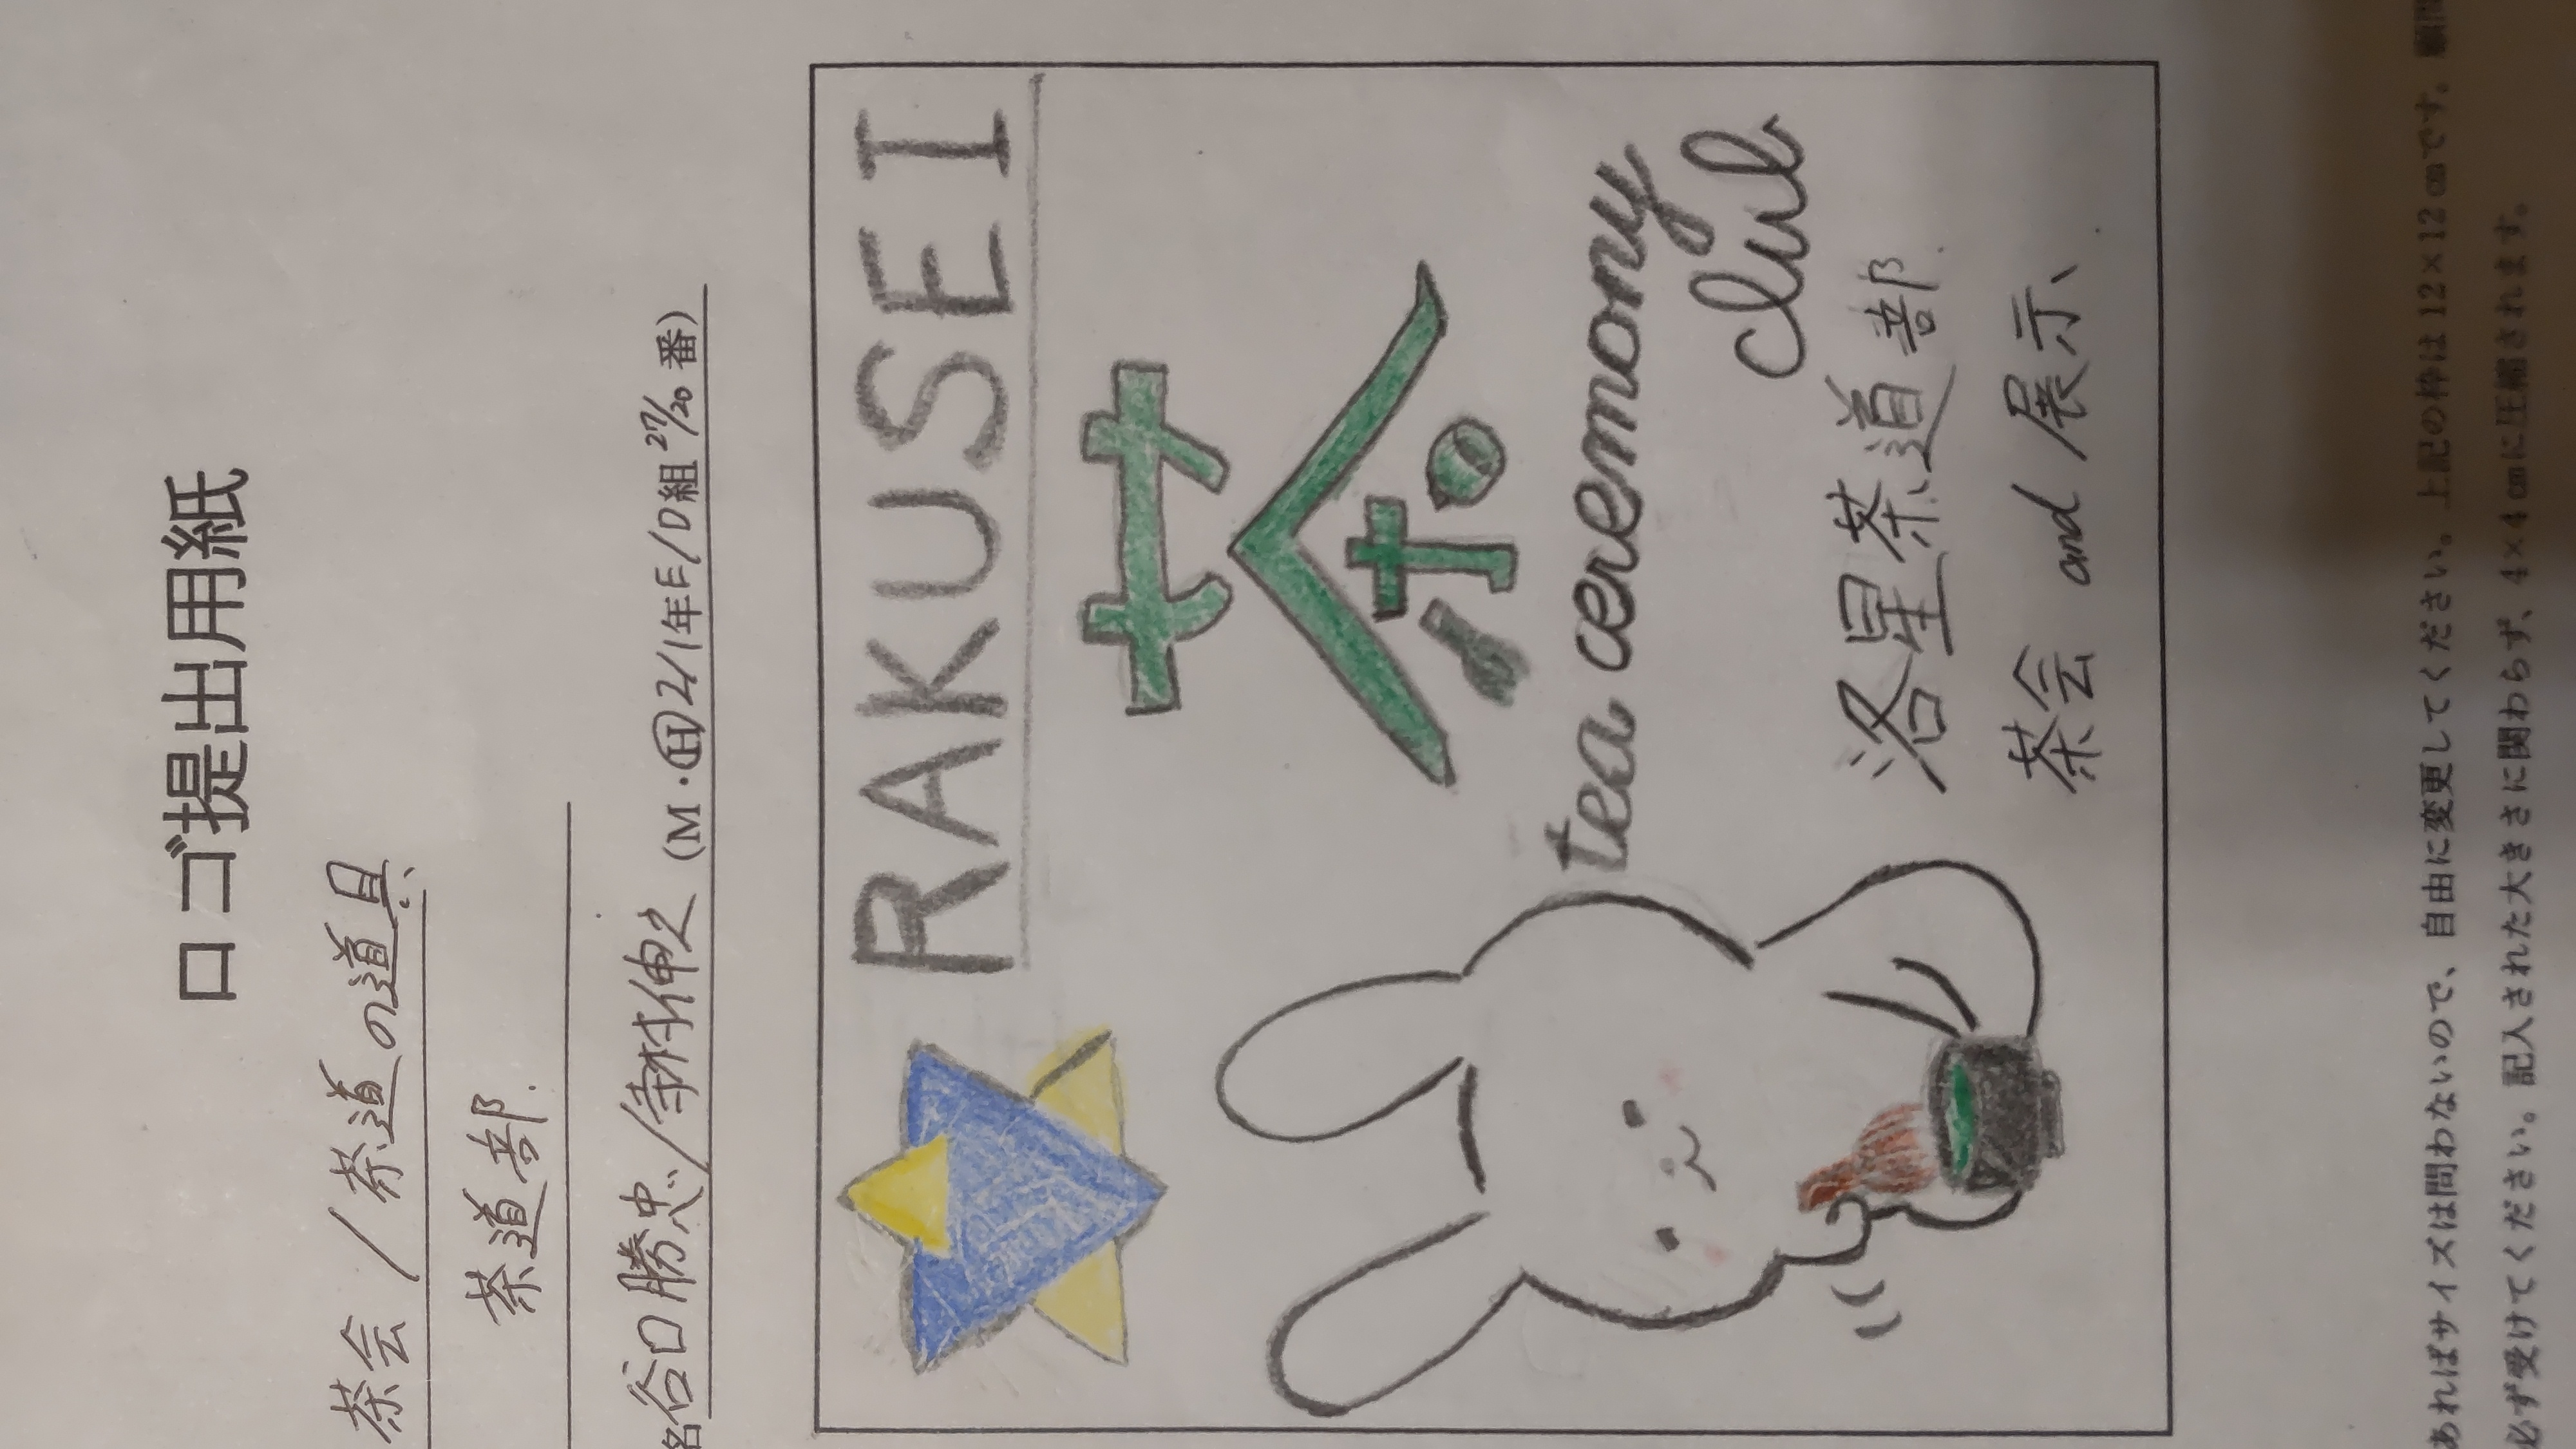 ロゴ提出用紙
茶会/茶道の道具
茶道部.
名 谷口勝忠/寺村伸之 (M・H 2/1年E/D組 27/20 番)
RAKUSEI
茶
tea ceremony
club
洛星茶道部.
茶会 and 展示.
あればサイズは問わないので、自由に変更してください。上記の枠は 12×12 ㎝です。顧問
必ず受けてください。記入された大きさに関わらず、4×4 ㎝に圧縮されます。